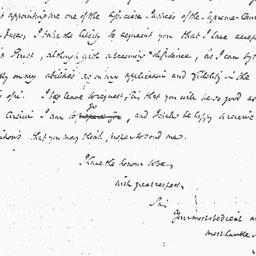 appointing me one of the associate Justices of the Supreme Court
I take the liberty to acquaint you that I have accepted
Trust, although with a diffidence, as I can by
on my abilities as on my application and fidelity in the
I beg leave to request, Sir, that you will be so good as
I am to and I shall be happy to receive
that you may think proper to send me.
I have the honour to be,
with great respect,
Sir,
Your most obedient
most humble